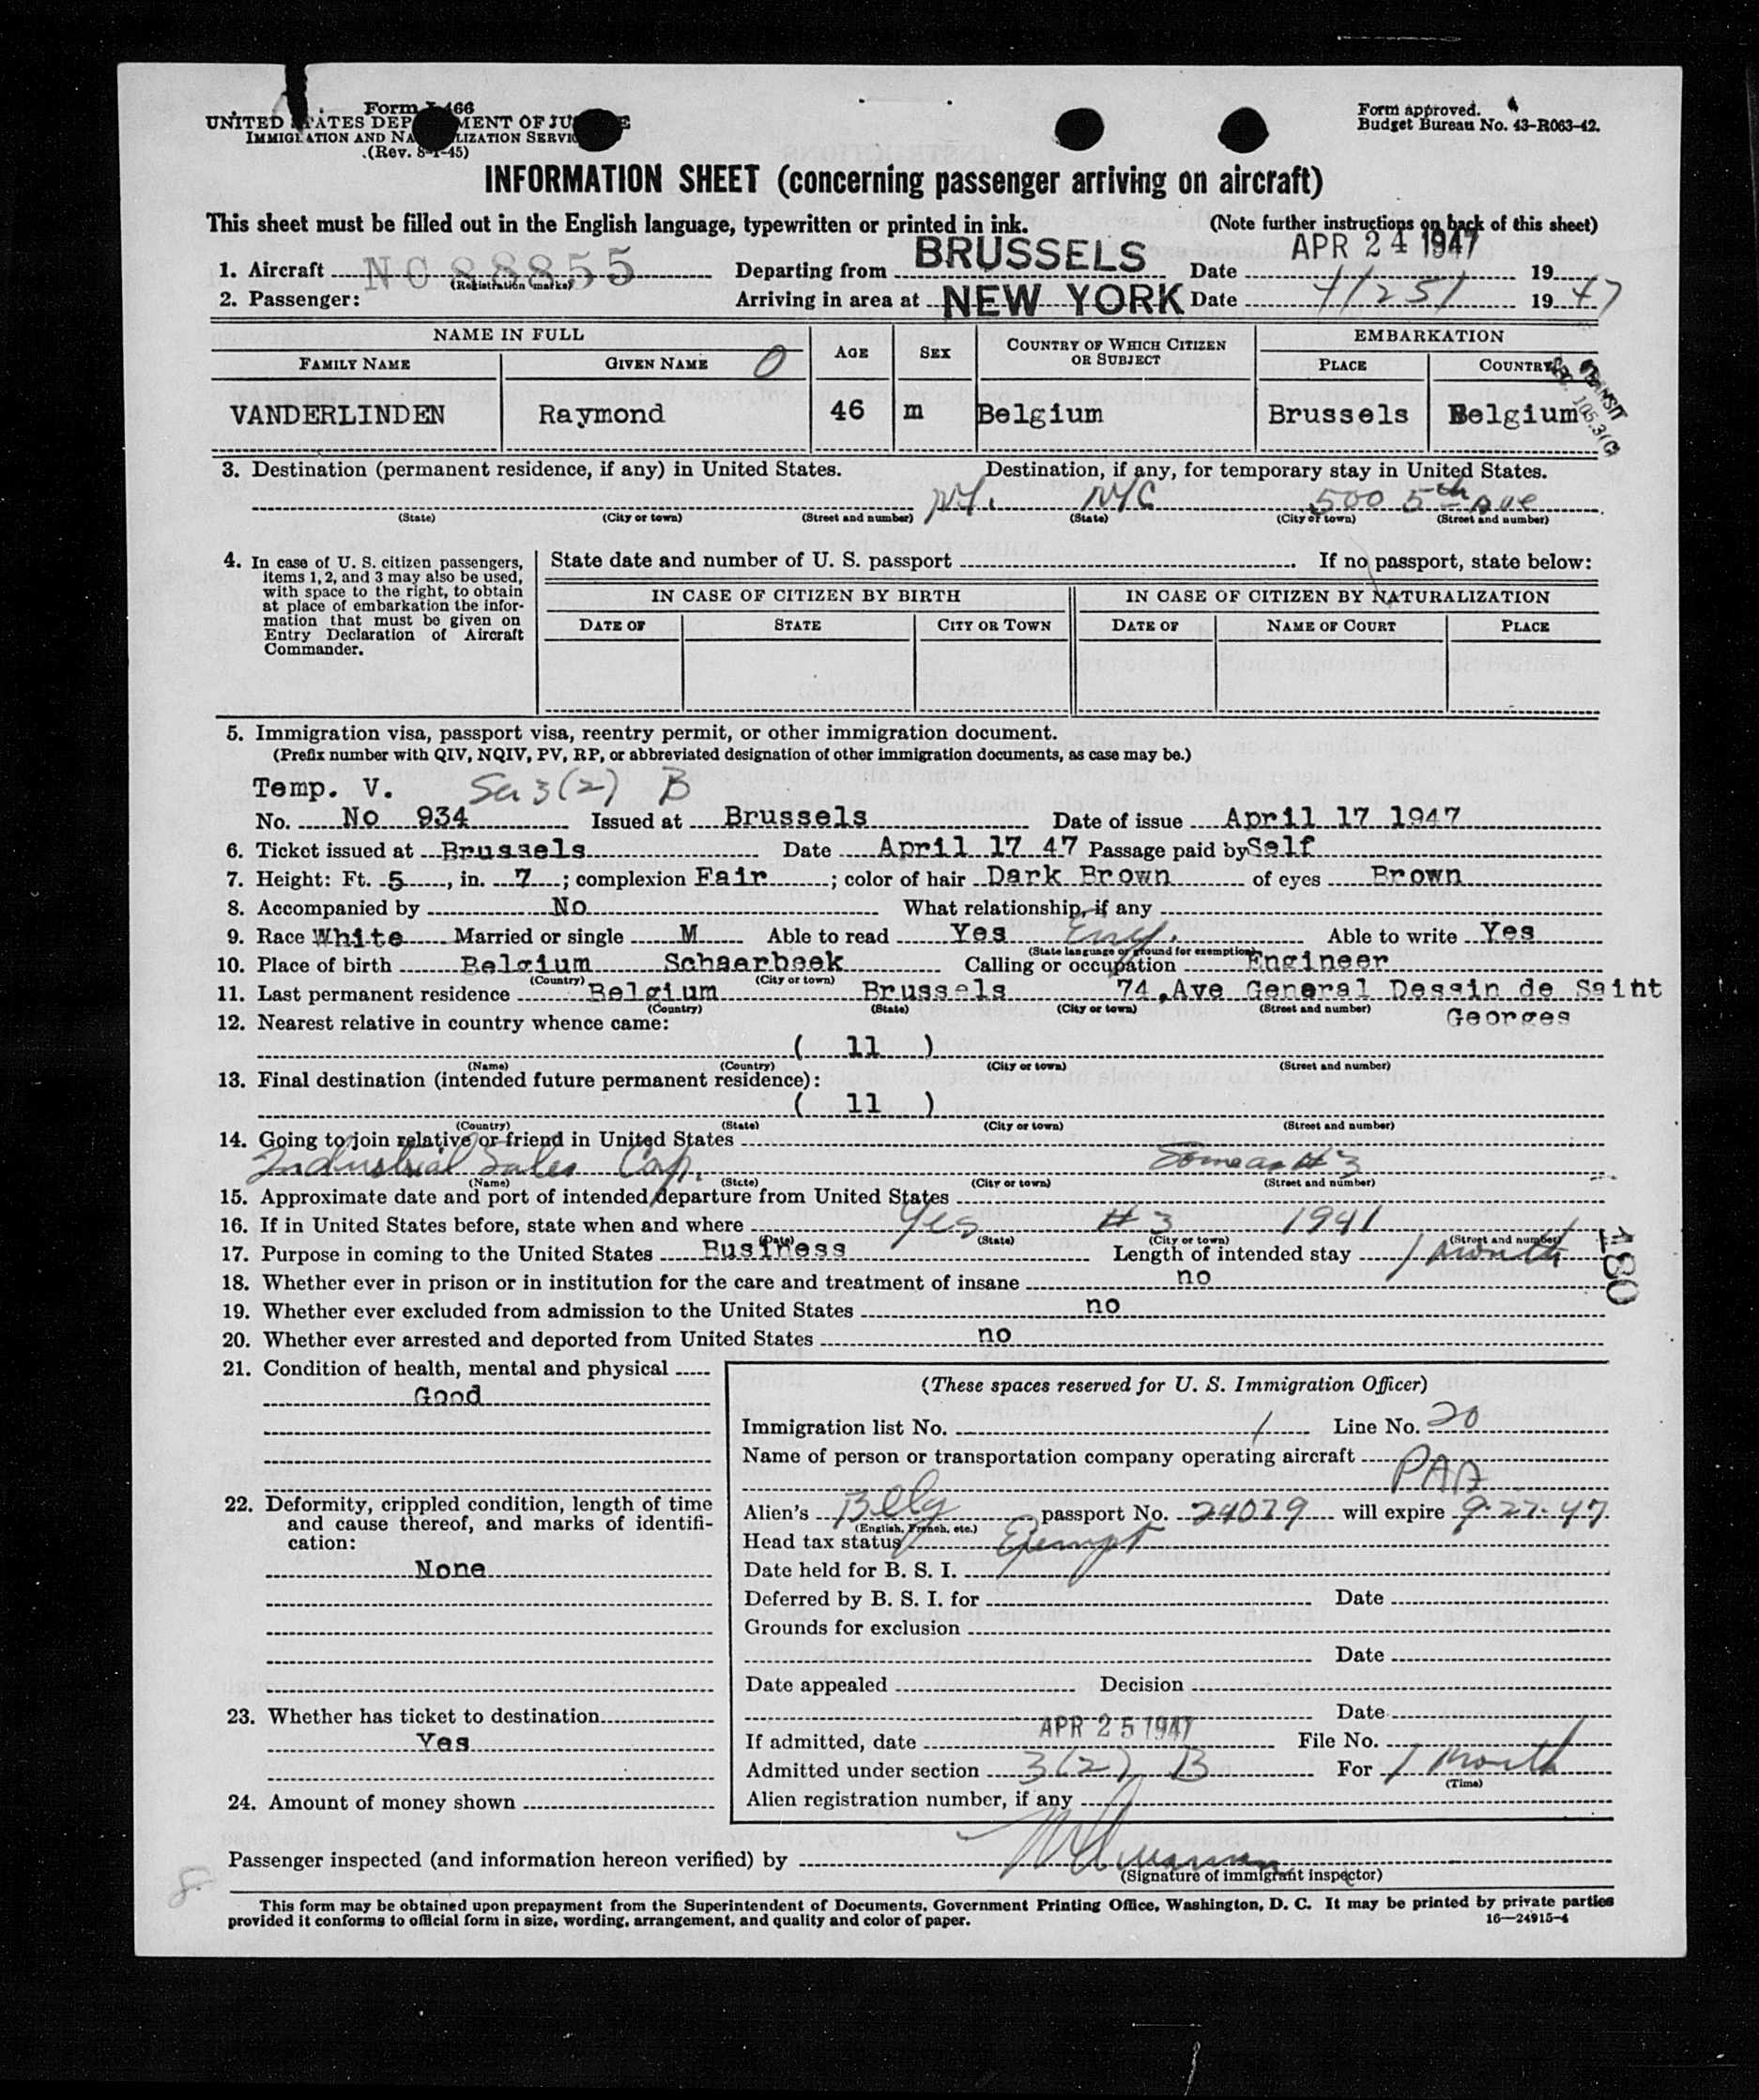 Form I-466
UNITED STATES DEPARTMENT OF JUSTICE
IMMIGRATION AND NATURALIZATION SERVICE
(Rev. 8-1-45)
Form approved.
Budget Bureau No. 43-R063-42.
INFORMATION SHEET (concerning passenger arriving on aircraft)
This sheet must be filled out in the English language, typewritten or printed in ink. (Note further instructions on back of this sheet)
1. Aircraft NC 88855 Departing from BRUSSELS Date APR 24 1947 19
(Registration marks)
2. Passenger: Arriving in area at NEW YORK Date 4/25/ 1947
NAME IN FULL AGE SEX COUNTRY OF WHICH CITIZEN OR SUBJECT EMBARKATION
FAMILY NAME GIVEN NAME O PLACE COUNTRY
TRANSIT
105.3(C)
VANDERLINDEN Raymond 46 m Belgium Brussels Belgium
3. Destination (permanent residence, if any) in United States. Destination, if any, for temporary stay in United States.
N.Y. NYC 500 5th Ave
(State) (City or town) (Street and number) (State) (City or town) (Street and number)
4. In case of U. S. citizen passengers, items 1, 2, and 3 may also be used, with space to the right, to obtain at place of embarkation the information that must be given on Entry Declaration of Aircraft Commander.
State date and number of U. S. passport If no passport, state below:
IN CASE OF CITIZEN BY BIRTH IN CASE OF CITIZEN BY NATURALIZATION
DATE OF STATE CITY OR TOWN DATE OF NAME OF COURT PLACE
5. Immigration visa, passport visa, reentry permit, or other immigration document.
(Prefix number with QIV, NQIV, PV, RP, or abbreviated designation of other immigration documents, as case may be.)
Temp. V. Sec 3(2) B
No. No 934 Issued at Brussels Date of issue April 17 1947
6. Ticket issued at Brussels Date April 17 47 Passage paid by Self
7. Height: Ft. 5, in. 7; complexion Fair; color of hair Dark Brown of eyes Brown
8. Accompanied by No What relationship, if any
9. Race White Married or single M Able to read Yes Eng. Able to write Yes
(State language or ground for exemption)
10. Place of birth Belgium Schaerbeek Calling or occupation Engineer
(Country) (City or town)
11. Last permanent residence Belgium Brussels 74, Ave General Dessin de Saint Georges
(Country) (State) (City or town) (Street and number)
12. Nearest relative in country whence came:
( 11 )
(Name) (Country) (City or town) (Street and number)
13. Final destination (intended future permanent residence):
( 11 )
(Country) (State) (City or town) (Street and number)
14. Going to join relative or friend in United States
Industrial Sales Corp. Same as #3
(Name) (State) (City or town) (Street and number)
15. Approximate date and port of intended departure from United States
16. If in United States before, state when and where Yes #3 1941
(Date) (State) (City or town) (Street and number)
17. Purpose in coming to the United States Business Length of intended stay 1 month
180
18. Whether ever in prison or in institution for the care and treatment of insane no
19. Whether ever excluded from admission to the United States no
20. Whether ever arrested and deported from United States no
21. Condition of health, mental and physical
Good
22. Deformity, crippled condition, length of time and cause thereof, and marks of identification:
None
23. Whether has ticket to destination
Yes
24. Amount of money shown
(These spaces reserved for U. S. Immigration Officer)
Immigration list No. 1 Line No. 20
Name of person or transportation company operating aircraft PAA
Alien's Belg passport No. 24079 will expire 9-27-47
(English, French, etc.)
Head tax status Exempt
Date held for B. S. I.
Deferred by B. S. I. for Date
Grounds for exclusion
Date
Date appealed Decision
Date
If admitted, date APR 25 1947 File No.
Admitted under section 3(2) B For 1 month
(Time)
Alien registration number, if any
Passenger inspected (and information hereon verified) by
(Signature of immigrant inspector)
8
This form may be obtained upon prepayment from the Superintendent of Documents, Government Printing Office, Washington, D. C. It may be printed by private parties
provided it conforms to official form in size, wording, arrangement, and quality and color of paper. 16—24915-4